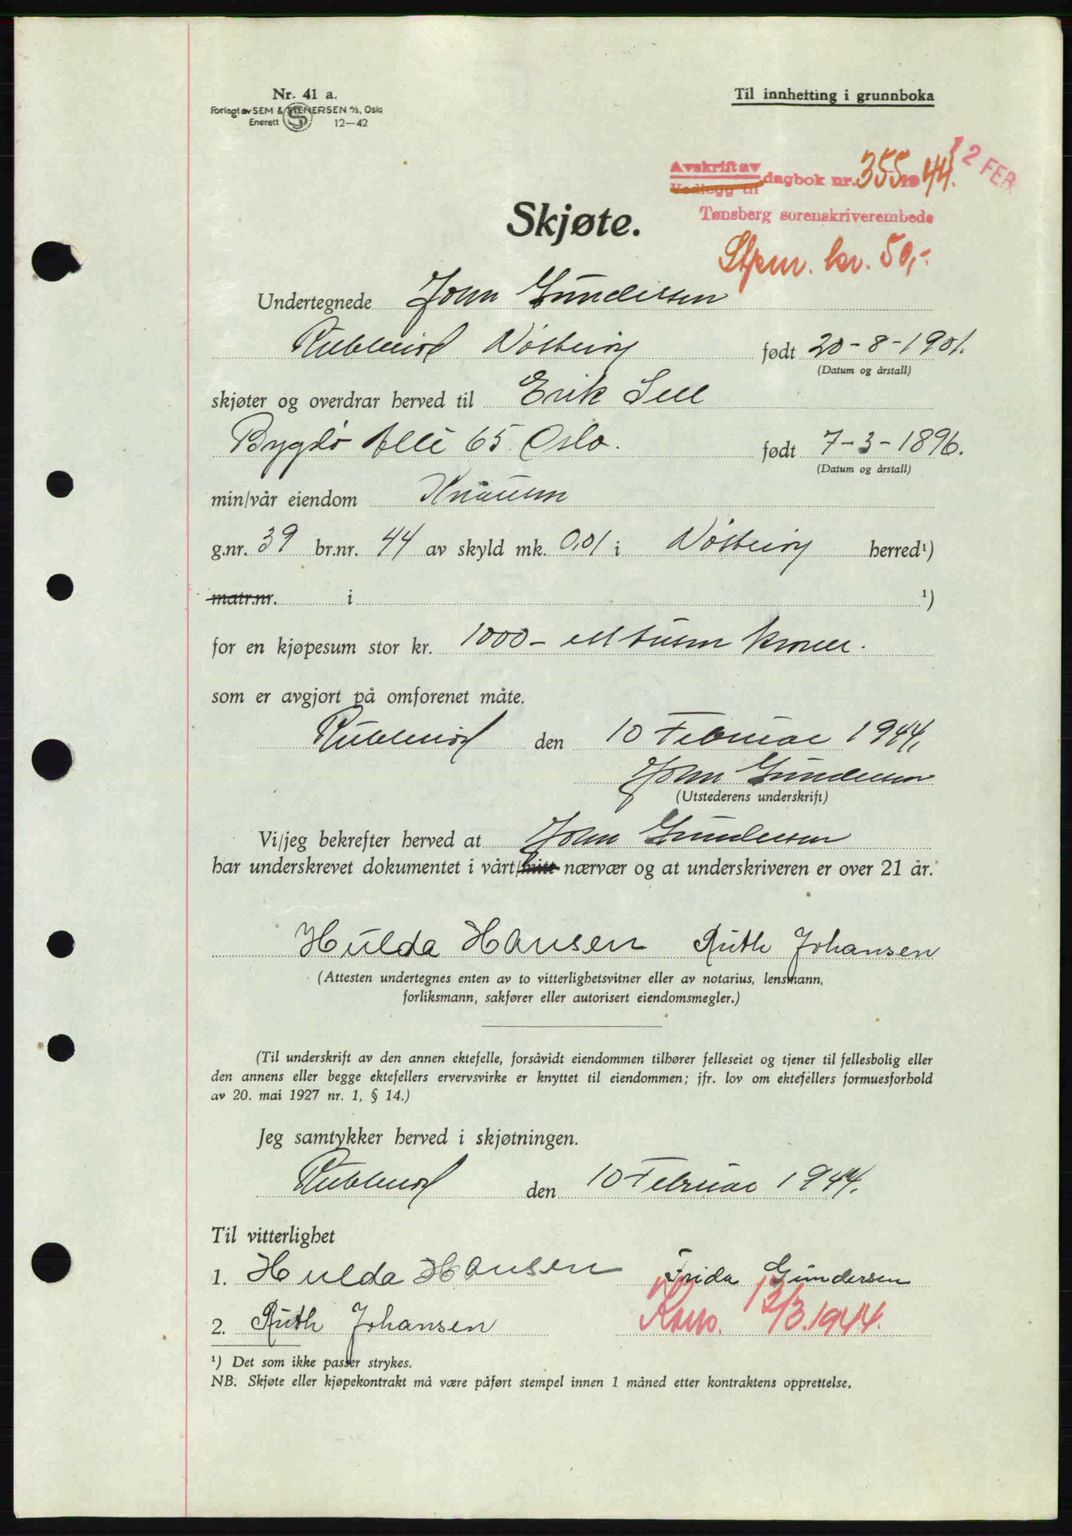 Nr. 41 a.
Forlagt av SEM & STENERSEN A/S, Oslo
Enerett 12—42
Til innhefting i grunnboka
Avskrift av
Vedlegg til dagbok nr. 355 19 44.
12 FEB.
Tønsberg sorenskriverembede
Stpm. kr. 50,-
Skjøte.
Undertegnede John Gundersen
Nøtterøy født 20-8-1901.
(Datum og årstall)
skjøter og overdrar herved til Erik Sell
Bygdø Alle 65 Oslo. født 7-3-1896.
(Datum og årstall)
min/vår eiendom Knausen
g.nr. 39 br.nr. 44 av skyld mk. 0,01 i Nøtterøy herred¹)
matr.nr. i ¹)
for en kjøpesum stor kr. 1000- ett tusen kroner.
som er avgjort på omforenet måte.
den 10 Februar 1944.
John Gundersen
(Utstederens underskrift)
Vi/jeg bekrefter herved at John Gundersen
har underskrevet dokumentet i vårt/mitt nærvær og at underskriveren er over 21 år.
Hulda Hansen Ruth Johansen
(Attesten undertegnes enten av to vitterlighetsvitner eller av notarius, lensmann,
forliksmann, sakfører eller autorisert eiendomsmegler.)
(Til underskrift av den annen ektefelle, forsåvidt eiendommen tilhører felleseiet og tjener til fellesbolig eller
den annens eller begge ektefellers ervervsvirke er knyttet til eiendommen; jfr. lov om ektefellers formuesforhold
av 20. mai 1927 nr. 1, § 14.)
Jeg samtykker herved i skjøtningen.
den 10 Februar 1944.
Til vitterlighet
1. Hulda Hansen Frida Gundersen
2. Ruth Johansen Kons. 13/3.1944.
¹) Det som ikke passer strykes.
NB. Skjøte eller kjøpekontrakt må være påført stempel innen 1 måned etter kontraktens opprettelse.